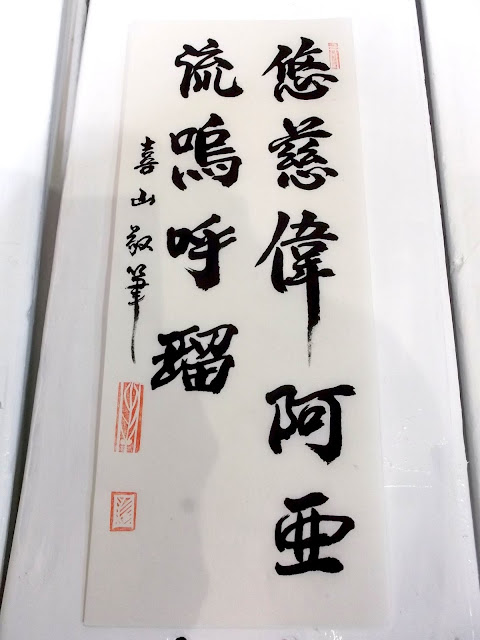 悠慈偉阿亜
流嗚呼瑠
喜山敬筆